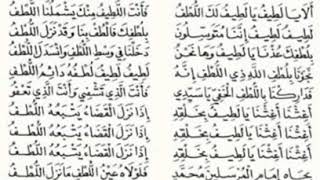 أَلَا يَا لَطِيفُ يَا لَطِيفُ لَكَ اللُّطْفُ فَأَنْتَ اللَّطِيفُ مِنْكَ يَشْمَلُنَا اللُّطْفُ
لَطِيفُ لَطِيفُ إِنَّنَا مُتَوَسِّلُونَ بِلُطْفِكَ فَالْطُفْ بِنَا وَقَدْ نَزَلَ اللُّطْفُ
بِلُطْفِكَ عُذْنَا يَا لَطِيفُ وَهَا نَحْنُ دَخَلْنَا فِي وَسْطِ اللُّطْفِ وَانْسَدَلَ اللُّطْفُ
نَجَوْنَا بِلُطْفِ اللَّهِ ذِي اللُّطْفِ إِنَّهُ لَطِيفٌ لَطِيفٌ لُطْفُهُ دَائِمُ اللُّطْفِ
فَدَارِكْنَا بِاللُّطْفِ الْخَفِيِّ يَا سَيِّدِي فَأَنْتَ الَّذِي تَشْفِي وَأَنْتَ الَّذِي تَعْفُو
أَغِثْنَا أَغِثْنَا يَا لَطِيفُ بِخَلْقِهِ إِذَا نَزَلَ الْقَضَاءُ يَتْبَعُهُ اللُّطْفُ
أَغِثْنَا أَغِثْنَا يَا لَطِيفُ بِخَلْقِهِ إِذَا نَزَلَ الْقَضَاءُ يَتْبَعُهُ اللُّطْفُ
أَغِثْنَا أَغِثْنَا يَا لَطِيفُ بِخَلْقِهِ إِذَا نَزَلَ الْقَضَاءُ يَتْبَعُهُ اللُّطْفُ
بِجَاهِ إِمَامِ الْمُرْسَلِينَ مُحَمَّدٍ فَلَوْلَاهُ عَيْنُ اللُّطْفِ مَا نَزَلَ اللُّطْفُ